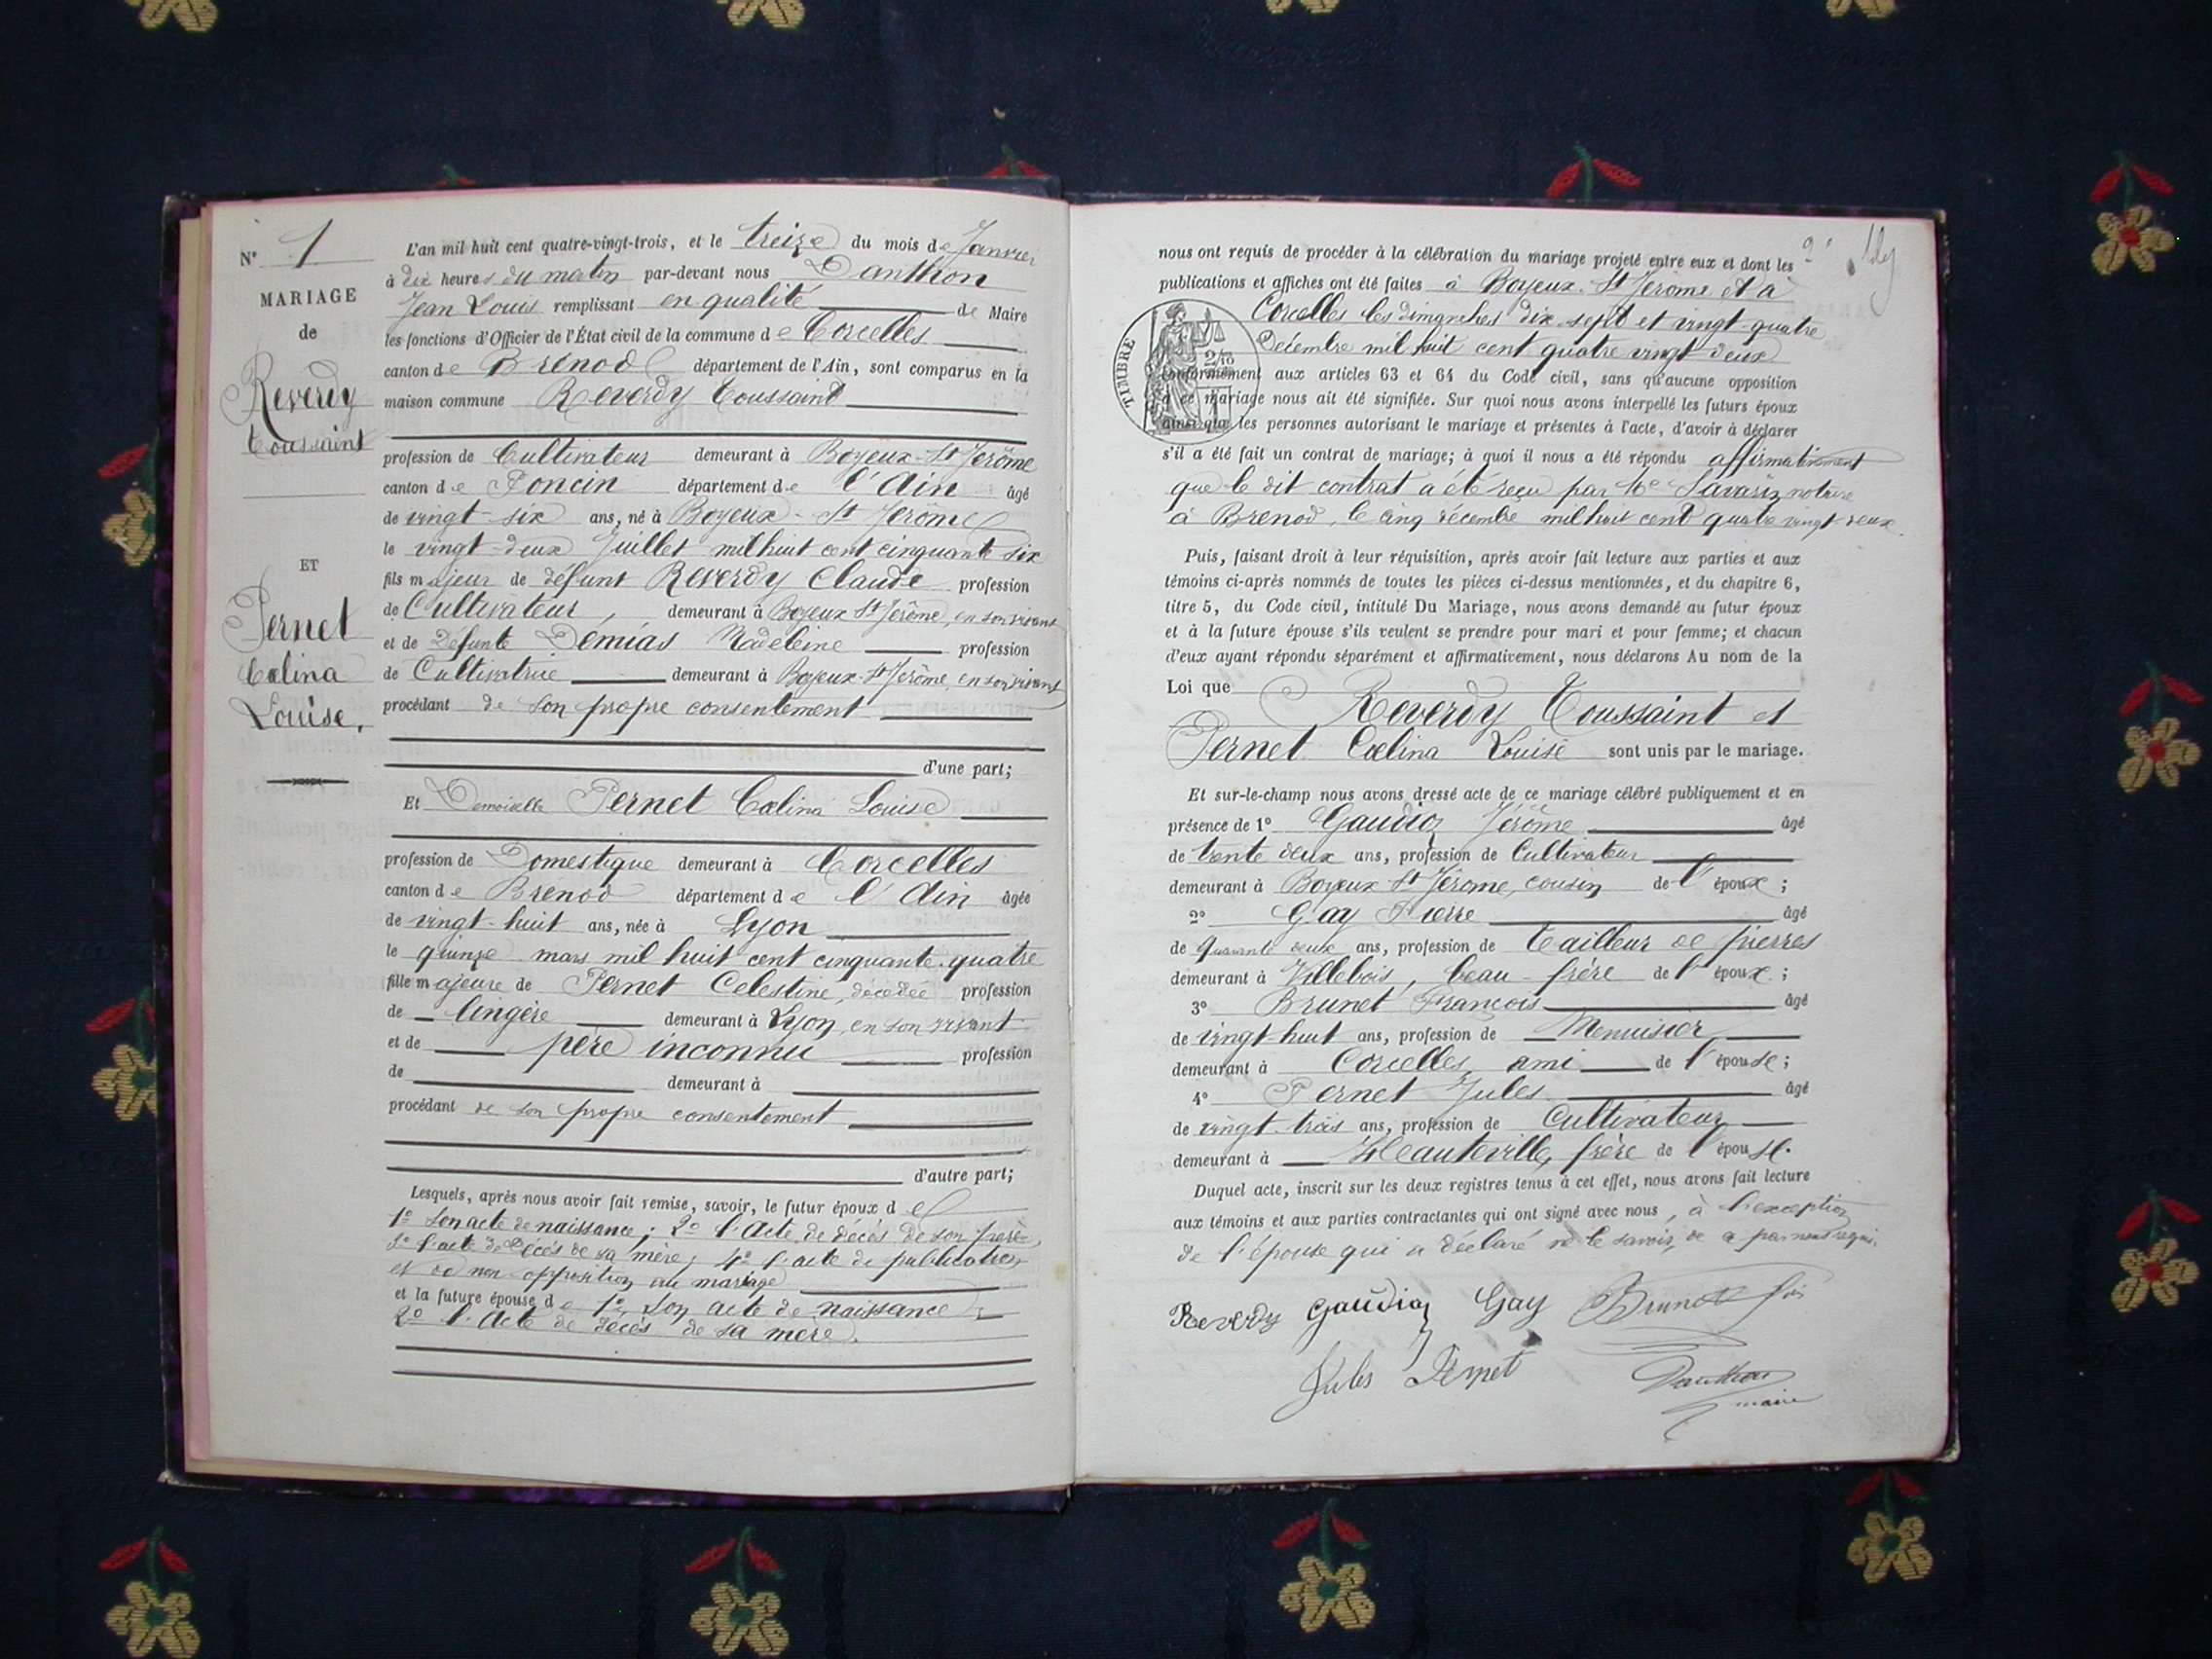 N° 1
MARIAGE
de
Reverdy
Toussaint
ET
Pernet
Cœlina
Louise.
L'an mil huit cent quatre-vingt-trois, et le treize du mois de Janvier
à dix heures du matin par-devant nous Danthon
Jean Louis remplissant en qualité de Maire
les fonctions d'Officier de l'État civil de la commune de Corcelles
canton de Brenod département de l'Ain, sont comparus en la
maison commune Reverdy Toussaint
profession de Cultivateur demeurant à Boyeux-St Jérôme
canton de Poncin département de l'Ain âgé
de vingt-six ans, né à Boyeux-St Jérôme
le vingt-deux Juillet mil huit cent cinquante six
fils majeur de défunt Reverdy Claude profession
de Cultivateur, demeurant à Boyeux St Jérôme, en son vivant
et de Défunte Démias Madeleine profession
de Cultivatrice demeurant à Boyeux-St Jérôme, en son vivant
procédant de son propre consentement
d'une part;
Et Demoiselle Pernet Cœlina Louise
profession de Domestique demeurant à Corcelles
canton de Brenod département de l'Ain âgée
de vingt-huit ans, née à Lyon
le quinze mars mil huit cent cinquante-quatre
fille majeure de Pernet Celestine, décédée profession
de lingère demeurant à Lyon, en son vivant
et de père inconnu profession
de demeurant à
procédant de son propre consentement
d'autre part;
Lesquels, après nous avoir fait remise, savoir, le futur époux de
1° Son acte de naissance; 2° l'Acte de décès de son père
3° l'acte de Décès de sa mère; 4° l'acte de publication
et de non-opposition au mariage
et la future épouse de 1° Son acte de naissance;
2° l'Acte de décès de sa mère.
2e
nous ont requis de procéder à la célébration du mariage projeté entre eux et dont les
publications et affiches ont été faites à Boyeux-St Jérôme et à
Corcelles les dimanches dix-sept et vingt-quatre
Décembre mil huit cent quatre vingt-deux
TIMBRE
conformément aux articles 63 et 64 du Code civil, sans qu'aucune opposition
à ce mariage nous ait été signifiée. Sur quoi nous avons interpellé les futurs époux
ainsi que les personnes autorisant le mariage et présentes à l'acte, d'avoir à déclarer
s'il a été fait un contrat de mariage; à quoi il nous a été répondu affirmativement
que le dit contrat a été reçu par Me Savarin notaire
à Brenod, le cinq décembre mil huit cent quatre vingt-deux.
Puis, faisant droit à leur réquisition, après avoir fait lecture aux parties et aux
témoins ci-après nommés de toutes les pièces ci-dessus mentionnées, et du chapitre 6,
titre 5, du Code civil, intitulé Du Mariage, nous avons demandé au futur époux
et à la future épouse s'ils veulent se prendre pour mari et pour femme; et chacun
d'eux ayant répondu séparément et affirmativement, nous déclarons Au nom de la
Loi que Reverdy Toussaint et
Pernet Cœlina Louise sont unis par le mariage.
Et sur-le-champ nous avons dressé acte de ce mariage célébré publiquement et en
présence de 1° Gaudioz Jérôme âgé
de trente deux ans, profession de Cultivateur
demeurant à Boyeux-St Jérome, cousin de l'époux;
2° Gay Pierre âgé
de quarante deux ans, profession de Tailleur de pierres
demeurant à Villebois, beau-frère de l'époux;
3° Brunet François âgé
de vingt huit ans, profession de Menuisier
demeurant à Corcelles, ami de l'épouse;
4° Pernet Jules âgé
de vingt-trois ans, profession de Cultivateur
demeurant à Hauteville, frère de l'épouse.
Duquel acte, inscrit sur les deux registres tenus à cet effet, nous avons fait lecture
aux témoins et aux parties contractantes qui ont signé avec nous, à l'exception
de l'épouse qui a déclaré ne le savoir, de ce par nous requis.
Reverdy Gaudioz Gay Brunet
Jules Pernet Danthon
maire